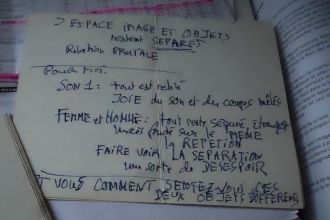 > ESPACE IMAGE ET OBJETS
restent SEPARES
Relation BRUTALE
Pour moi
SON 1 : tout est relié
JOIE du son et du corps mêlés
FEMME et HOMME : tout reste séparé, étranger
mais sur le MEME
la REPETION
FAIRE VOIR LA SEPARATION
une sorte de DESESPOIR
VOUS COMMENT SENTEZ-VOUS CES
DEUX OBJETS DIFFERENTS